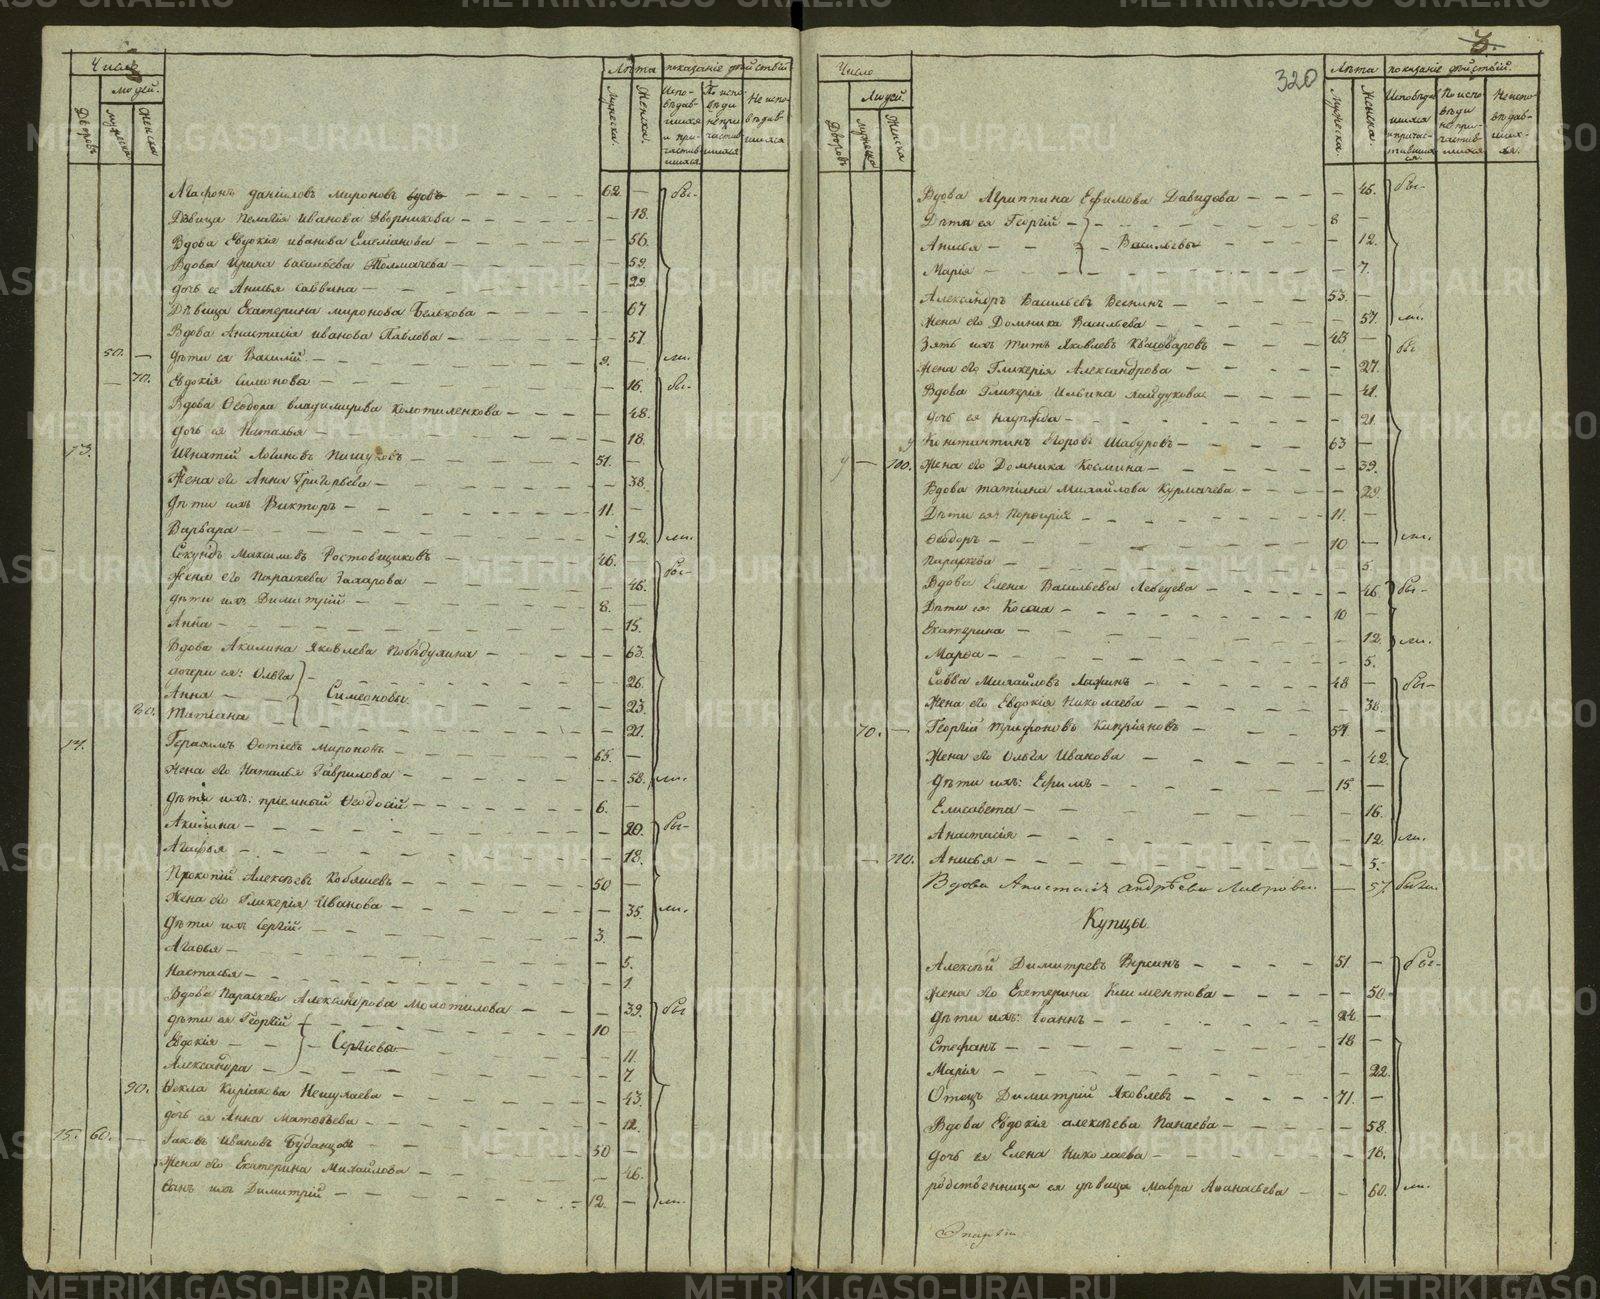 Число
Людей.
Дворовъ
Мужеска
Женска
Лѣта
Мужеска.
Женска.
показаніе дѣйствій
Испо-
вѣдав-
шихся
и при-
частив-
шихся
По испо-
вѣди
не при-
частив-
шихся
Не испо-
вѣдав-
шихся
Агафонъ Даніиловъ Мироновъ вдовъ 62. — бы-
Дѣвица Пелагія Иванова Дворникова — 18.
Вдова Евдокія Иванова Емеліанова — 56.
Вдова Ирина Васильева Толмачева — 59.
дочь ее Анисья Саввина — 29
Дѣвица Екатерина Миронова Бѣлькова — 67
Вдова Анастасія Иванова Павлова — 57.
50. — дѣти ея Василій. 9. — ли.
— 70. Евдокія Симеоновы — 16. бы-
Вдова Ѳеодора Владимирова Колотиленкова — 48.
дочь ея Наталья — 18.
13. Игнатій Логиновъ Пищуковъ 51. —
Жена его Анна Григорьева — 38.
Дѣти ихъ Викторъ 11. —
Варвара — 12. ли.
Секундъ Максимовъ Ростовщиковъ 46. —
Жена его Параскева Захарова — 46. бы-
дѣти ихъ Димитрій 8. —
Анна — 15.
Вдова Акилина Яковлева Побѣдухина — 63.
дочери ея: Ольга — 26.
Анна Симеоновы. — 23.
80. Татіана — 21.
14. Герасимъ Ѳотіевъ Мироновъ 65. —
Жена его Наталья Гаврилова — 58. ли.
Дѣти ихъ: пріемный Ѳеодосій 6. —
Акилина — 20. бы-
Агафья — 18.
Прокопій Алексѣевъ Кобяшевъ 50 —
Жена его Гликерія Иванова — 35. ли.
Дѣти ихъ Сергій. 3. —
Агафья — 5.
Настасья — 1
Вдова Параскева Александрова Молотилова — 39. бы
Дѣти ея Георгій 10 —
Евдокія Сергіевы — 11.
Александра — 7.
90. Ѳекла Киріакова Нешулаева — 43.
дочь ея Анна Матвѣева — 12.
15. 60. — Іаковъ Ивановъ Буданцовъ 50 —
Жена его Екатерина Михайлова — 46.
Сынъ ихъ Димитрій 12. — ли.
320
Число
Людей.
Дворовъ
Мужеска
Женска
Лѣта
Мужеска.
Женска.
показаніе дѣйствій.
Исповѣдав
шихся
и причас-
тивших
ся.
По испо
вѣди
не при-
частив-
шихся
Не испо-
вѣдав-
ших-
ся.
Вдова Агриппина Ефимова Давыдова — 45. бы-
Дѣти ея Георгій 8 —
Анисья Васильевы — 12.
Марія — 7.
Александръ Васильевъ Веснинъ 53. —
Жена его Домника Васильева — 57. ли.
Зять ихъ Титъ Яковлевъ Квасоваровъ 43 — бы
Жена его Гликерія Александрова — 27.
Вдова Гликерія Ильина Гайдукова — 41.
дочь ея Надежда — 21.
Константинъ Егоровъ Шабуровъ 63 —
— 100. Жена его Домника Косьмина — 39.
Вдова Татіана Михайлова Курмачева — 29.
Дѣти ея: Порфирій 11. —
Ѳеодоръ 10 — ли.
Параскева — 5.
Вдова Елена Васильева Лебедева — 46 бы-
Дѣти ея: Косма 10 —
Екатерина — 12. ли.
Марѳа — 5.
Савва Михайловъ Лафинъ 48 — бы-
Жена его Евдокія Николаева — 38.
70. — Георгій Трифоновъ Кипріяновъ 54 —
Жена его Ольга Иванова — 42.
Дѣти ихъ: Ефимъ 15 —
Елисавета — 16.
Анастасія — 12. ли.
— 110. Анисья — 5.
Вдова Анастасія Андрѣева Лаврова — 57. были.
Купцы.
Алексѣй Димитревъ Версинъ 51 — бы-
Жена его Екатерина Климентова — 50.
Дѣти ихъ: Іоаннъ 24 —
Стефанъ 18 —
Марія — 22.
Отецъ Димитрій Яковлевъ 71. —
Вдова Евдокія Алексѣева Панаева — 58.
Дочь ея Елена Николаева — 18.
родственница ея дѣвица Мавра Аѳанасьева — 60. ли.
METRIKI.GASO-URAL.RU